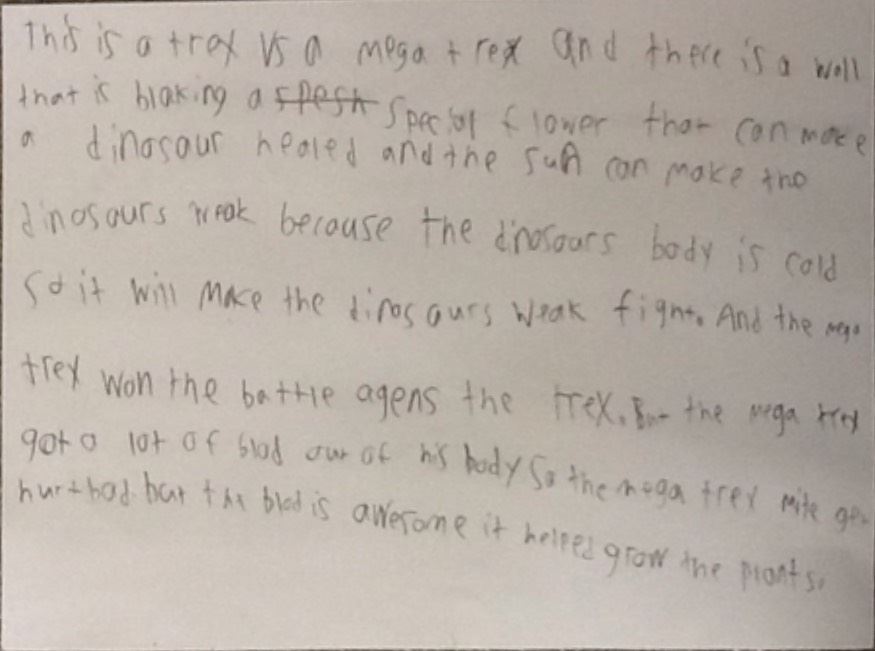 This is a trex vs a mega trex and there is a wall
that is blaking a spesh special flower that can make
a dinosaur healed and the sun can make the
dinosaurs weak because the dinosaurs body is cold
so it will make the dinosaurs weak fight. And the mega
trex won the battle agens the trex. But the mega trex
got a lot of blod out of his body so the mega trex mite get
hurt bad. but the blod is awesome it helped grow the plants.